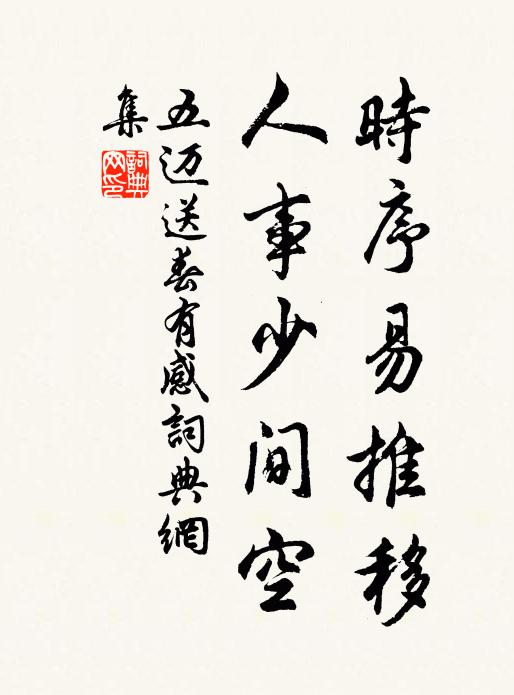 時序易推移
人事少间空
五迈送春有感詞典網
集
詞典
网印